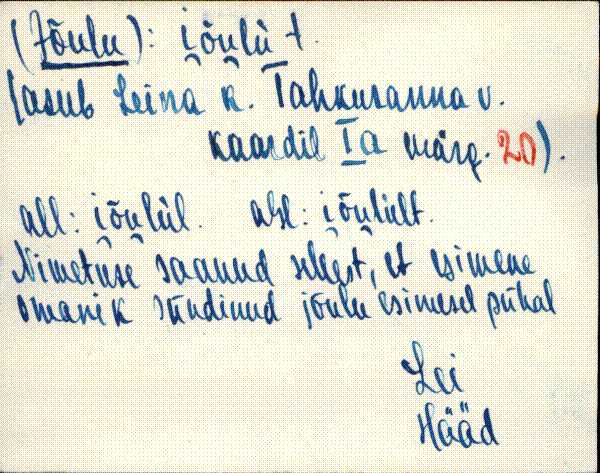 (Jõulu): i̯õu̯lù t.
(asub Leina k. Tahkuranna v.
kaardil Ia märg. 20).
all: i̯õu̯lùl. abl: i̯õu̯lùlt.
Nimetuse saanud sellest, et esimene
omanik sündinud jõulu esimesel pühal
Lei
Hääd